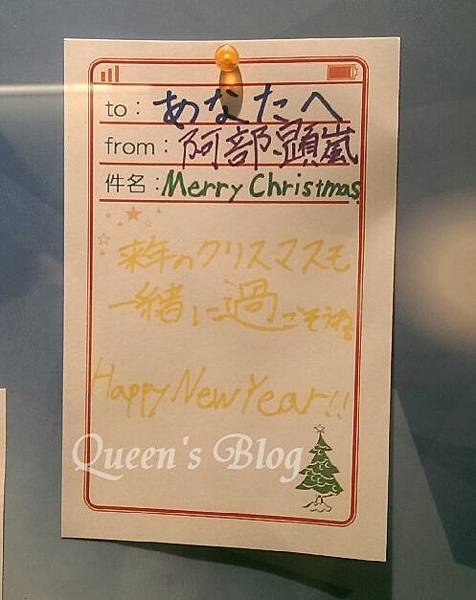 to：あなたへ
from：阿部顕嵐
件名：Merry Christmas
来年のクリスマスも
一緒に過ごそうね
Happy New Year!!
Queen's Blog